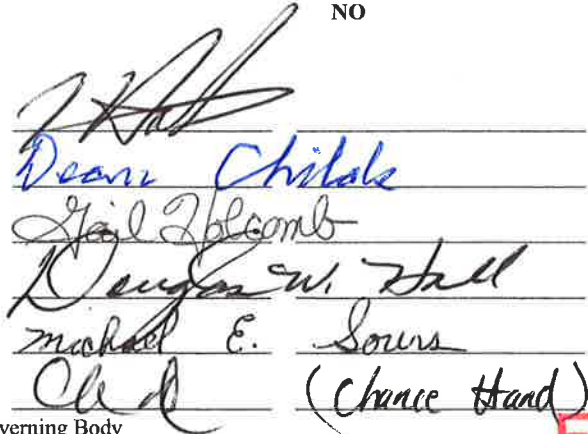 NO
Dean Childs
Gail Holcomb
Douglas W. Hall
Michael E. Sours
(Chance Hand)
verning Body